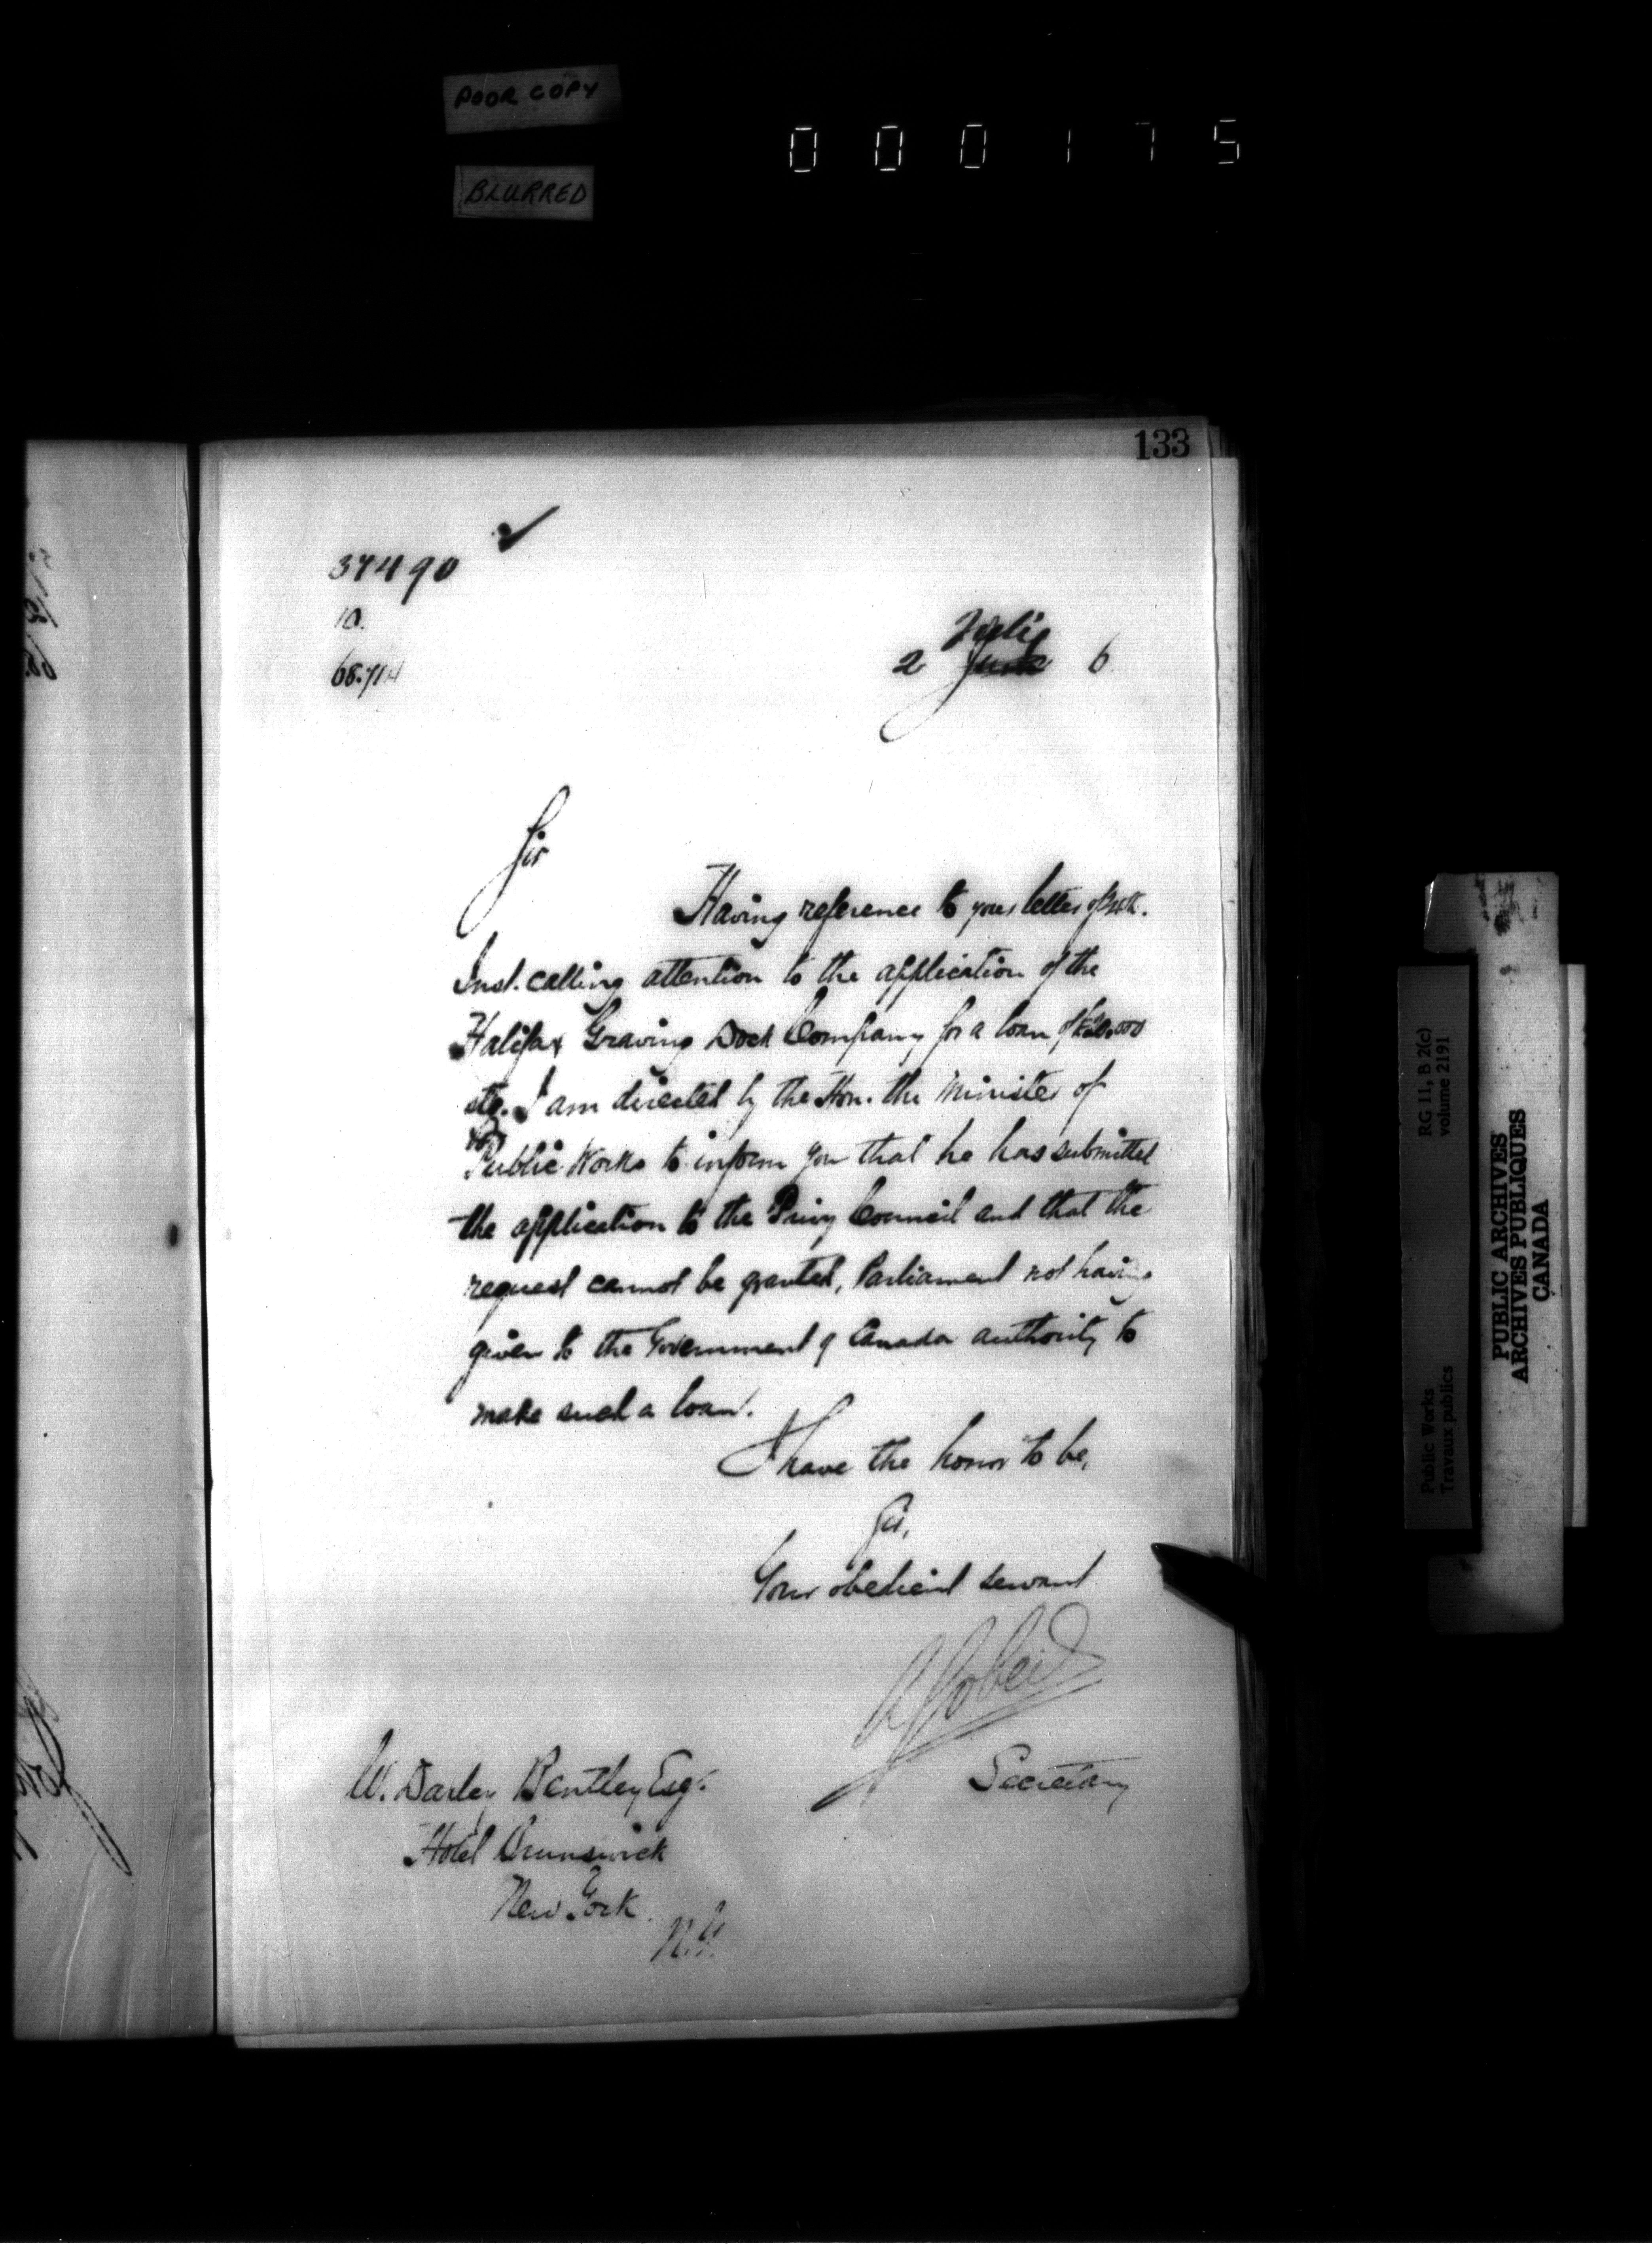 POOR COPY
BLURRED
000175
133
37490
10.
July
2 June 6
Sir
Having reference to your letter of
Inst. calling attention to the application of the
Halifax Graving Dock Company for a loan of
stg. I am directed by the Hon. the Minister of
Public Works to inform you that he has submitted
the application to the Privy Council and that the
request cannot be granted, Parliament not having
given to the Government of Canada authority to
make such a loan.
I have the honor to be,
Sir,
Your obedient servant
A Gobeil
Secretary
W. Darley Bentley Esq.
Hotel Brunswick
New York.
N.Y.
RG 11, B 2(c)
volume 2191
Public Works
Travaux publics
PUBLIC ARCHIVES
ARCHIVES PUBLIQUES
CANADA